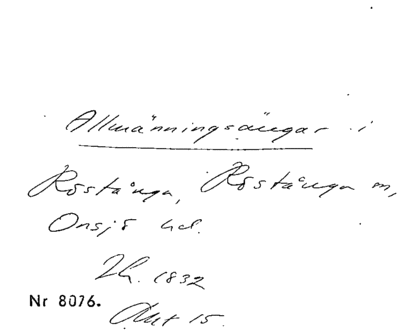 Allmänningsängar i
Röstånga, Röstånga m,
Onsjö hd.
Lh. 1832
Nr 8076.
Akt 15.